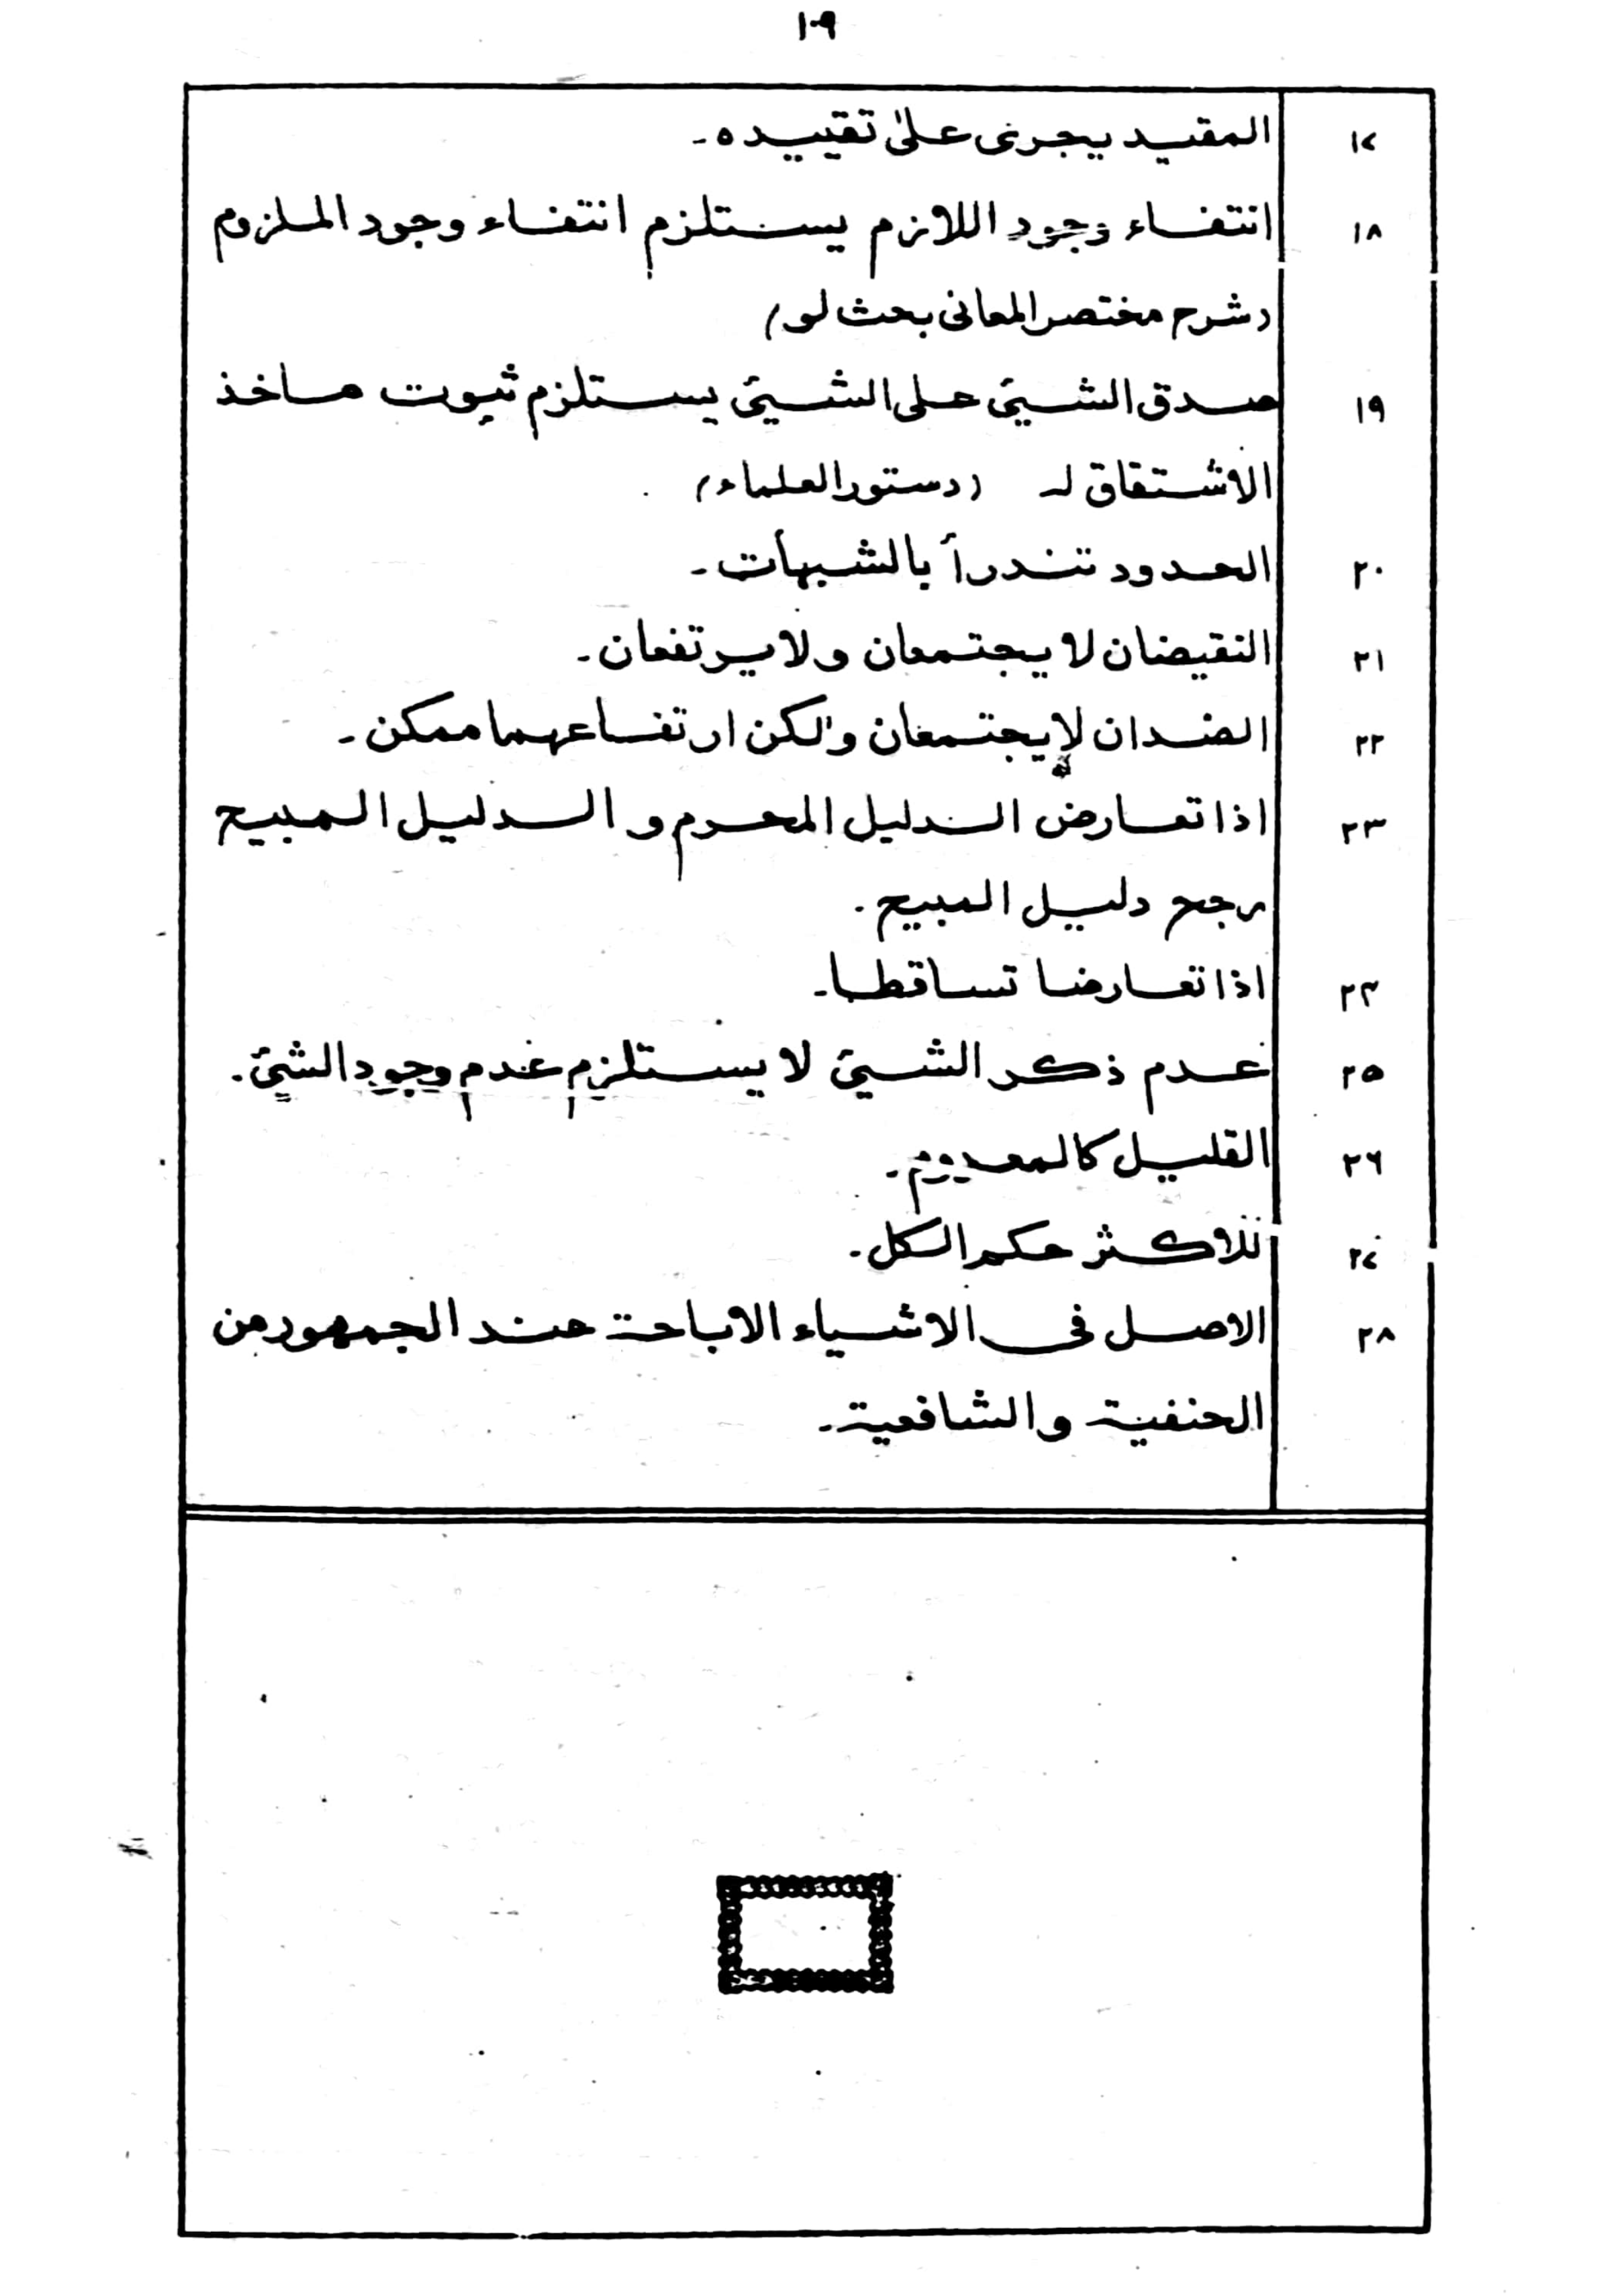 ۱۰۹
۱۷ المقید یجری علیٰ تقییدہ۔
۱۸ انتفاء وجود اللازم یستلزم انتفاء وجود الملزوم
(شرح مختصر المعانی بحث لو)
۱۹ صدق الشیئ علی الشیئ یستلزم ثبوت ماخذ
الاشتقاق لہ (دستور العلماء)
۲۰ الحدود تندرأ بالشبهات۔
۲۱ النقیضان لا یجتمعان ولا یرتفعان۔
۲۲ الضدان لا یجتمعان ولکن ارتفاعهما ممکن۔
۲۳ اذا تعارض الدلیل المحرم و الدلیل المبیح
رجح دلیل المبیح۔
۲۴ اذا تعارضا تساقطا۔
۲۵ عدم ذکر الشیئ لا یستلزم عدم وجود الشیئ۔
۲۶ القلیل کالمعدوم۔
۲۷ للاکثر حکم الکل۔
۲۸ الاصل فی الاشیاء الاباحة عند الجمهور من
الحنفیة والشافعیة۔